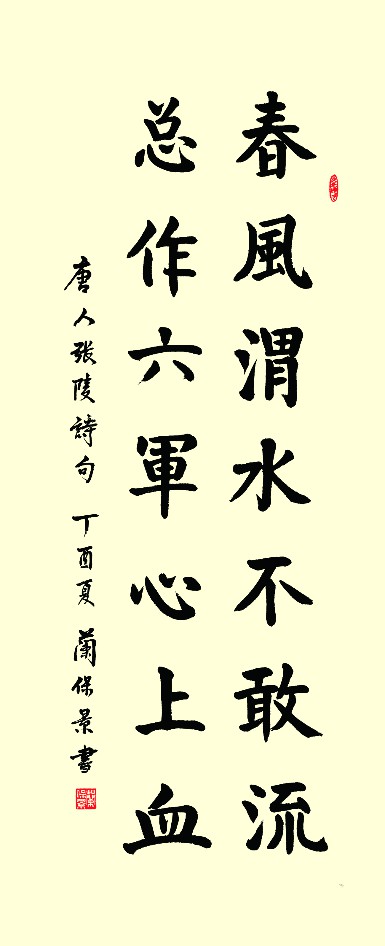 春風渭水不敢流
总作六軍心上血
唐人張陵詩句 丁酉夏 蘭保景書